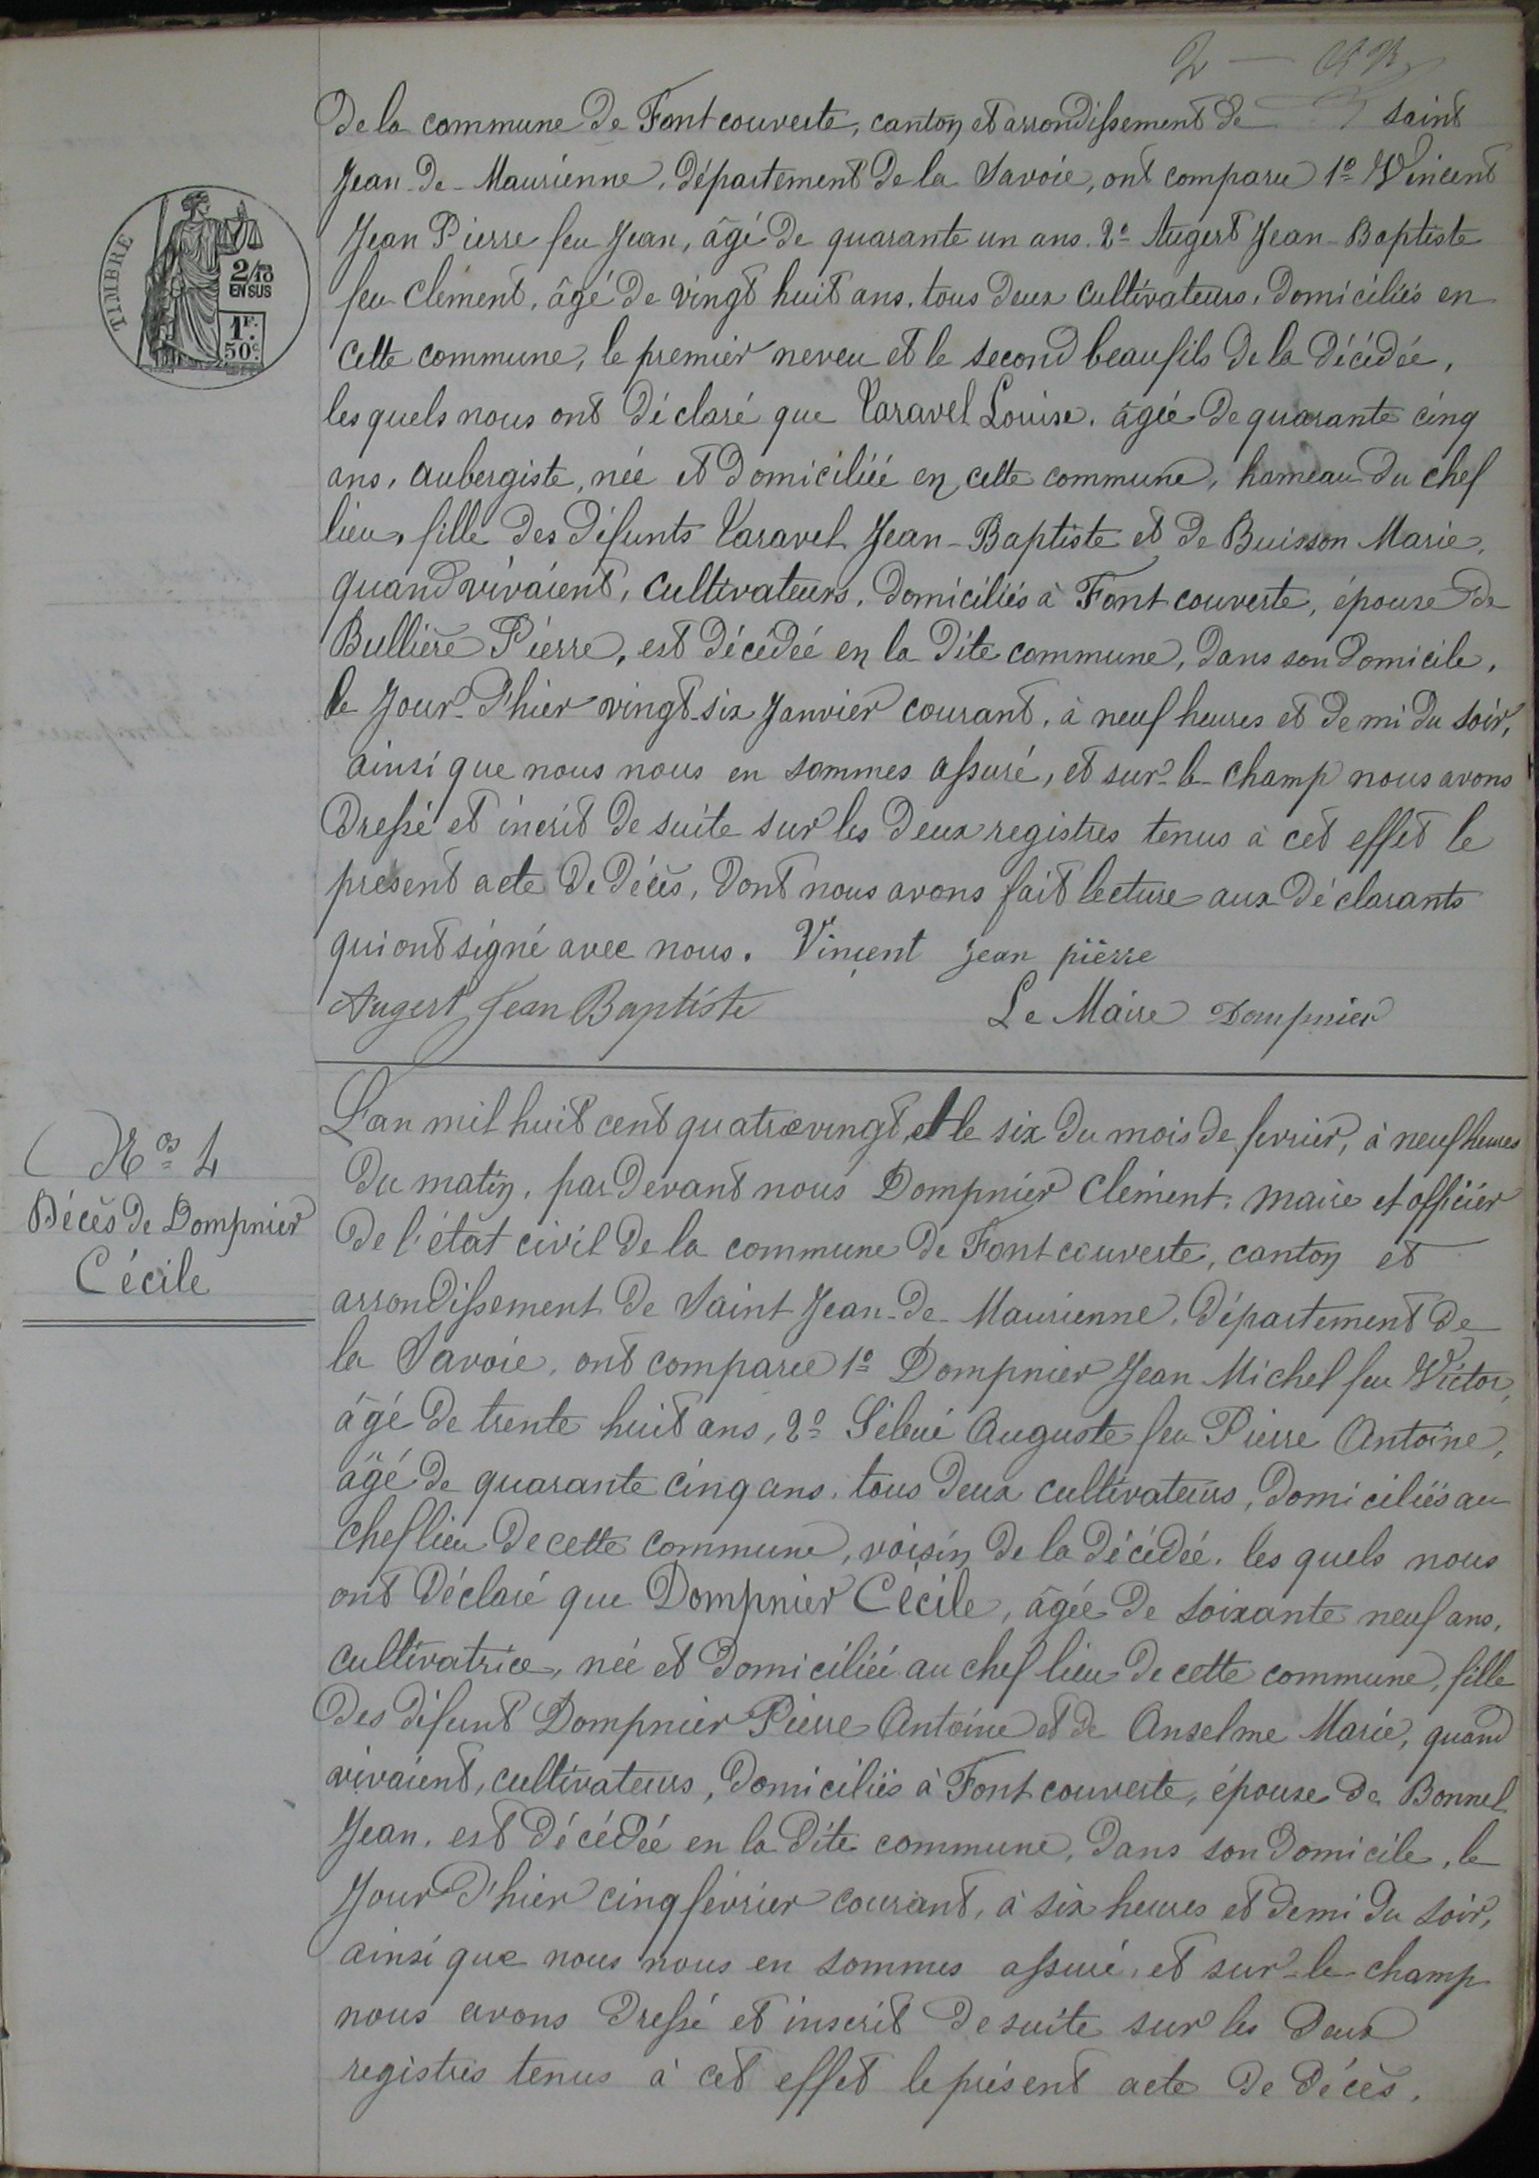 2
de la commune de Fontcouverte, canton et arrondissement de saint
Jean-de-Maurienne, département de la Savoie, ont comparu 1º Vincent
Jean Pierre feu Jean, âgé de quarante un ans. 2º Augert Jean-Baptiste
feu Clement, âgé de vingt huit ans, tous deux cultivateurs, domiciliés en
cette commune, le premier neveu et le second beau fils de la décédée,
les quels nous ont déclaré que Varavel Louise, âgée de quarante cinq
ans, aubergiste, née et domiciliée en cette commune, hameau du chef
lieu, fille des défunts Varavel Jean-Baptiste et de Buisson Marie,
quand vivaient, cultivateurs, domiciliés à Fontcouverte, épouse de
Bullière Pierre, est décédée en la dite commune, dans son domicile,
le jour d'hier vingt-six Janvier courant, à neuf heures et demi du soir,
ainsi que nous nous en sommes assuré, et sur-le-champ nous avons
dressé et inscrit de suite sur les deux registres tenus à cet effet le
présent acte de décès, dont nous avons fait lecture aux déclarants
qui ont signé avec nous. Vincent jean pierre
Augert Jean Baptiste Le Maire Dompnier
TIMBRE
2/10
EN SUS
1F.
50c.
Nos 4
Décès de Dompnier
Cécile
L'an mil huit cent quatrevingt, et le six du mois de fevrier, à neuf heures
du matin, par devant nous Dompnier Clément, maire et officier
de l'état civil de la commune de Fontcouverte, canton et
arrondissement de Saint Jean-de-Maurienne, département de
la Savoie, ont comparu 1º Dompnier Jean Michel feu Victor,
âgé de trente huit ans, 2º Sibué Auguste feu Pierre Antoine,
âgé de quarante cinq ans, tous deux cultivateurs, domiciliés au
chef lieu de cette commune, voisin de la décédée, les quels nous
ont déclaré que Dompnier Cécile, âgée de soixante neuf ans,
cultivatrice, née et domiciliée au chef lieu de cette commune, fille
des défunt Dompnier Pierre Antoine et de Anselme Marie, quand
vivaient, cultivateurs, domiciliés à Fontcouverte, épouse de Bonnel
Jean, est décédée en la dite commune, dans son domicile, le
jour d'hier cinq février courant, à six heures et demi du soir,
ainsi que nous nous en sommes assuré, et sur-le-champ
nous avons dressé et inscrit de suite sur les deux
registres tenus à cet effet le présent acte de décès,